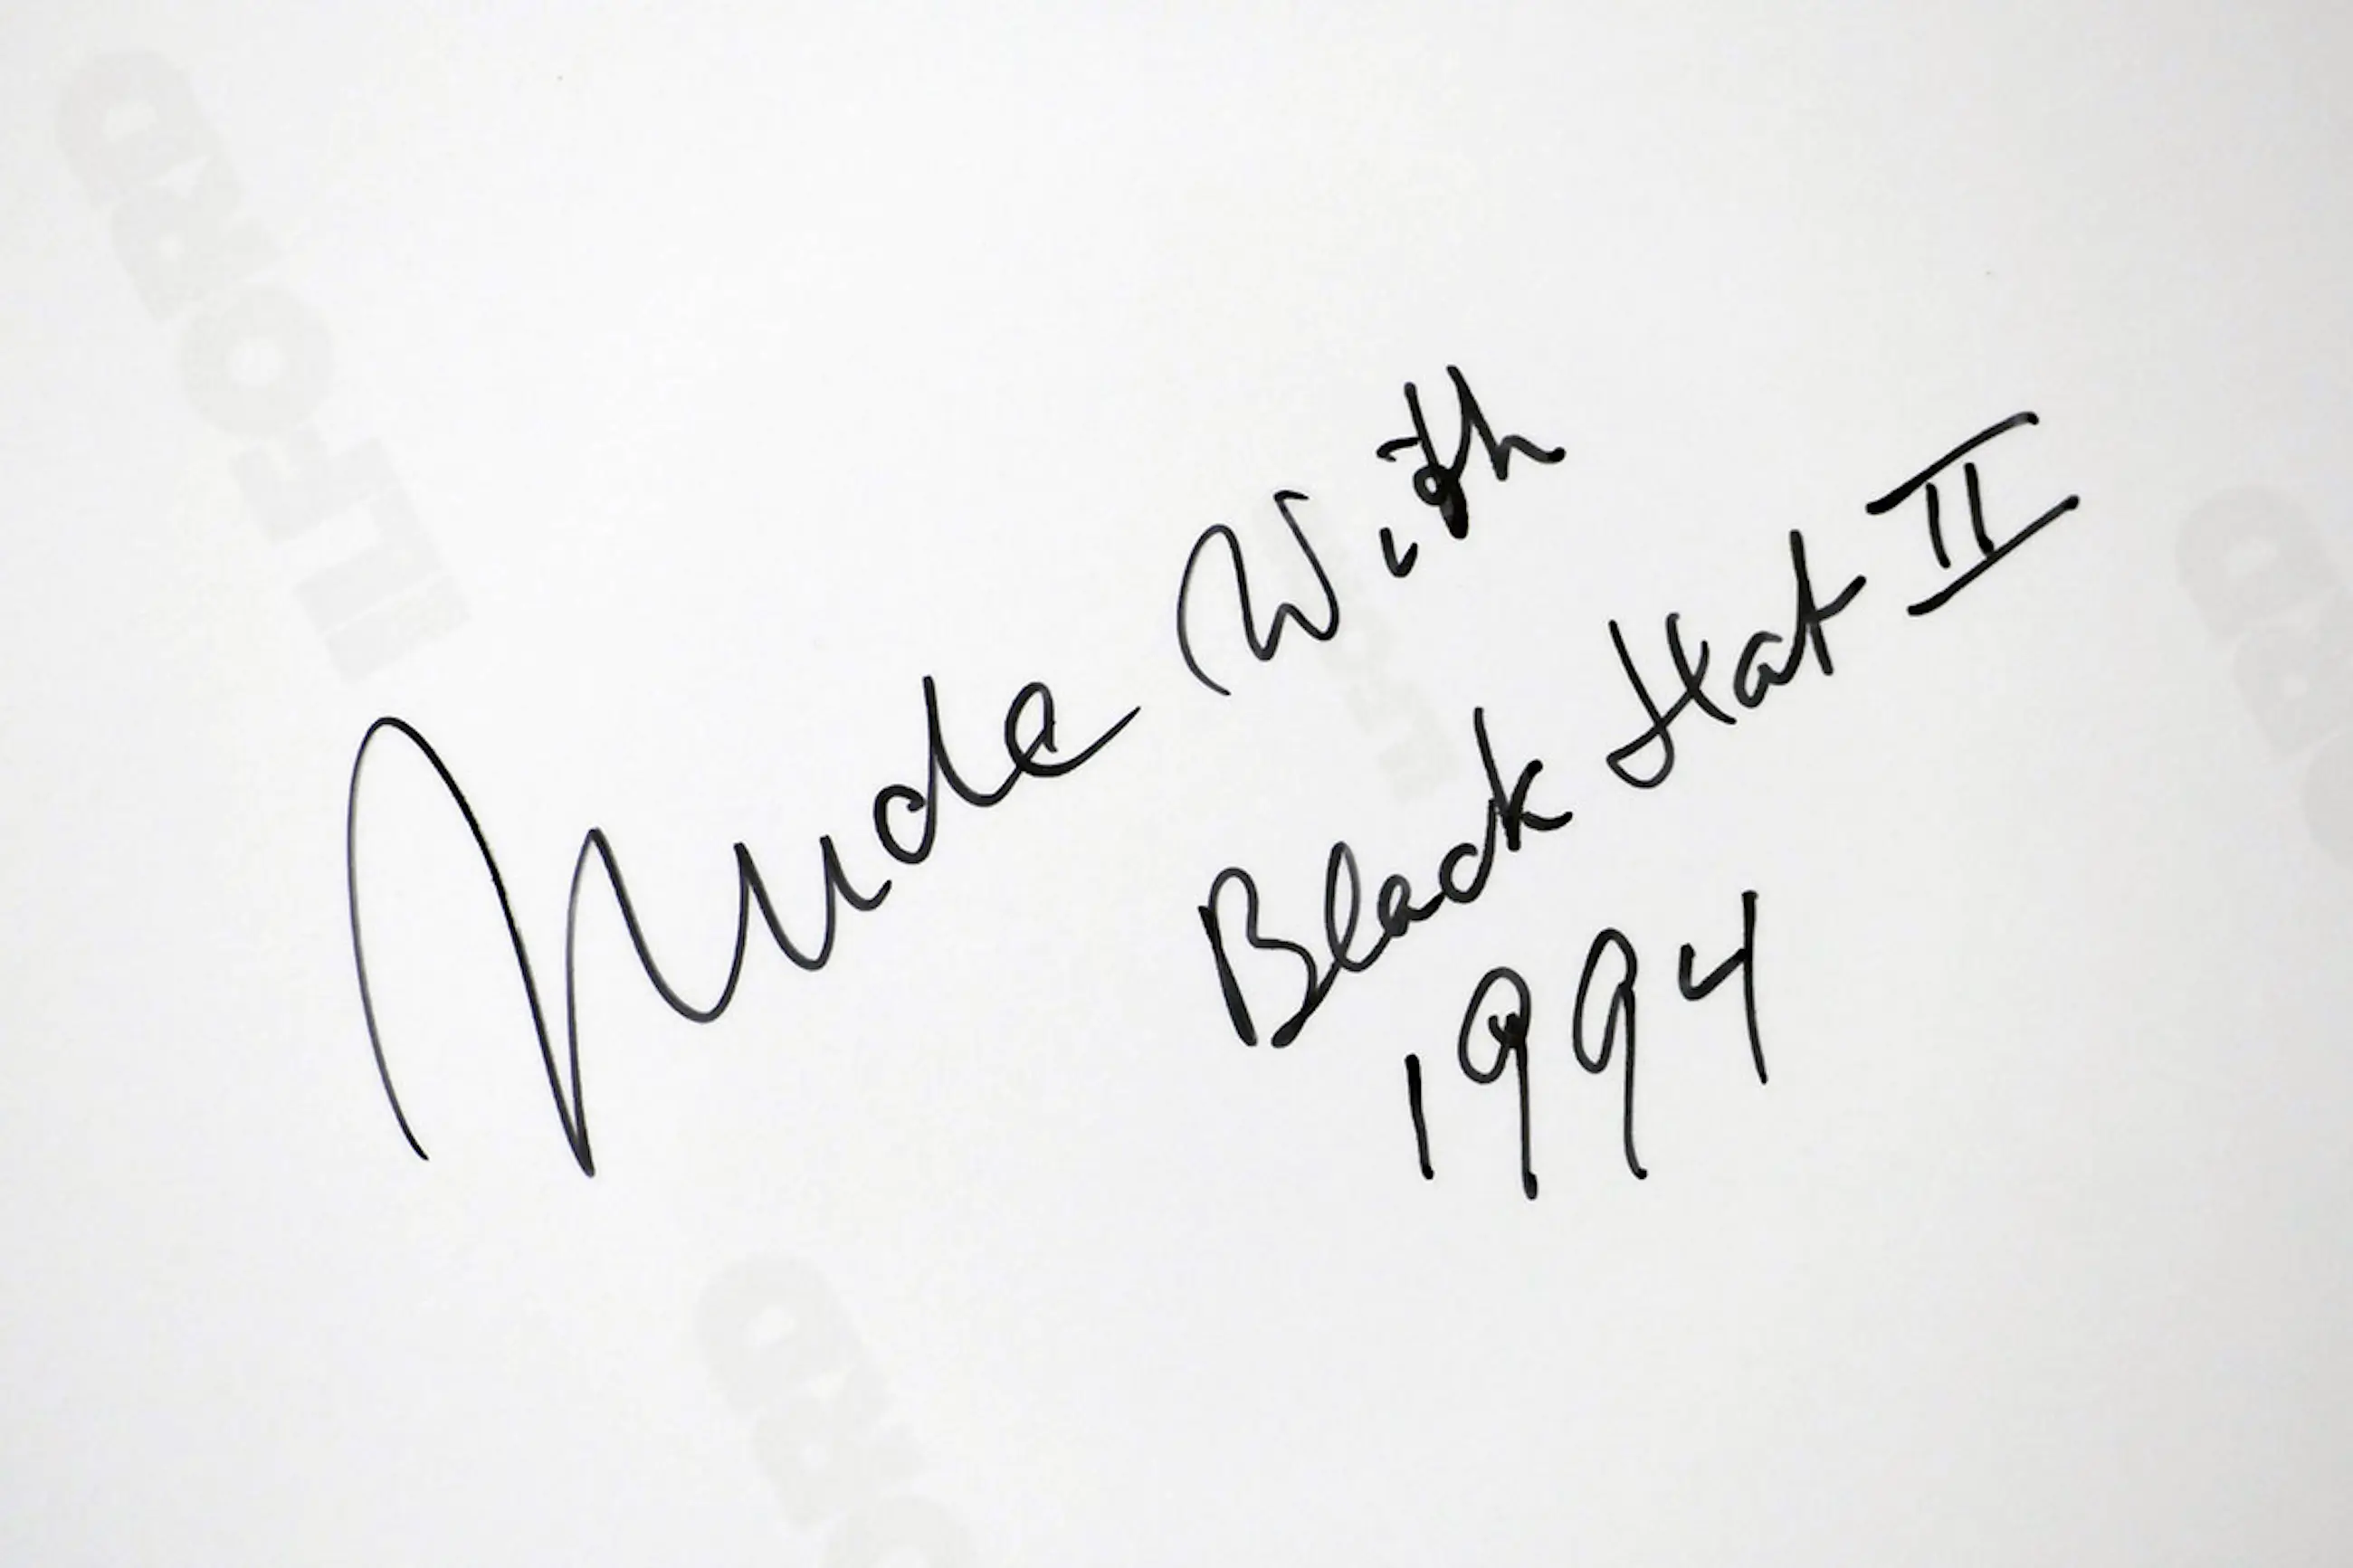 Nude With
Black Hat II
1994